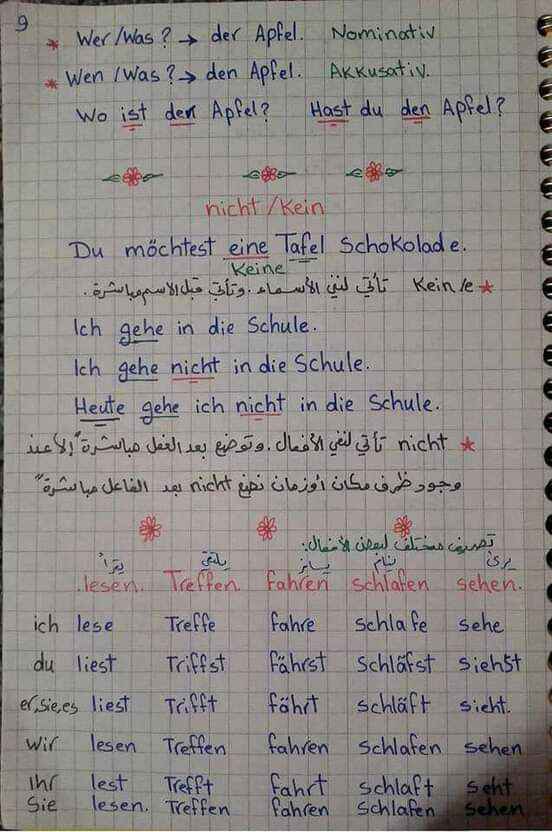 9
* Wer/Was? → der Apfel. Nominativ
* Wen/Was? → den Apfel. Akkusativ.
Wo ist der Apfel? Hast du den Apfel?
nicht/Kein
Du möchtest eine Tafel Schokolade.
Keine
* Kein/e تأتي لنفي الأسماء . وتأتي قبل الاسم مباشرة .
Ich gehe in die Schule.
Ich gehe nicht in die Schule.
Heute gehe ich nicht in die Schule.
* nicht تأتي لنفي الأفعال . وتوضع بعد الفعل مباشرة "إلا عند
وجود ظرف مكان أوزمان نضع nicht بعد الفاعل مباشرة"
تصريف مختلف لبعض الأفعال:
يقرأ يلتقي يسافر ينام يرى
lesen. Treffen. fahren schlafen sehen.
ich lese Treffe fahre schlafe sehe
du liest Triffst fährst Schläfst siehst
er,sie,es liest Trifft fährt schläft sieht.
wir lesen Treffen fahren schlafen sehen
Ihr lest Trefft fahrt schlaft seht
Sie lesen. Treffen fahren schlafen sehen